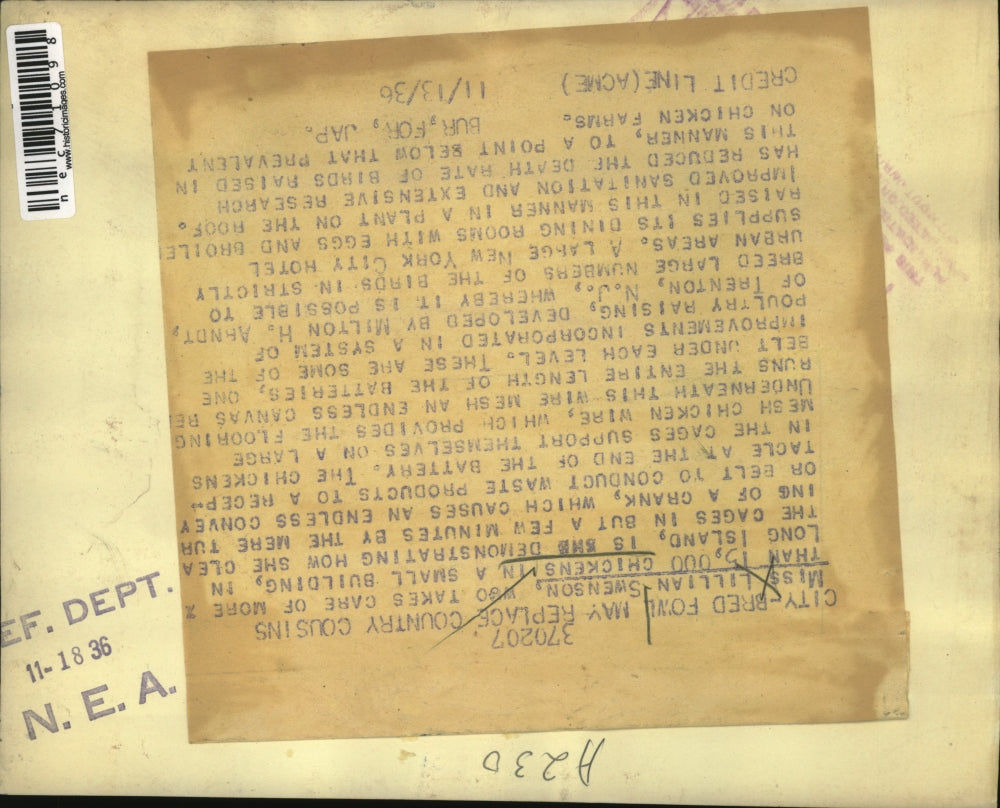 370207
CITY-BRED FOWL MAY REPLACE COUNTRY COUSINS
MISS LILLIAN SWENSON, WGO TAKES CARE OF MORE %
THAN 15,000 CHICKENS IN A SMALL BUILDING, IN
LONG ISLAND, IS DEMONSTRATING HOW SHE CLEA
THE CAGES IN BUT A FEW MINUTES BY THE MERE TUR
ING OF A CRANK, WHICH CAUSES AN ENDLESS CONVEY
OR BELT TO CONDUCT WASTE PRODUCTS TO A RECEP-
TACLE AT THE END OF THE BATTERY. THE CHICKENS
IN THE CAGES SUPPORT THEMSELVES ON A LARGE
MESH CHICKEN WIRE, WHICH PROVIDES THE FLOORING
UNDERNEATH THIS WIRE MESH AN ENDLESS CANVAS BE
RUNS THE ENTIRE LENGTH OF THE BATTERIES, ONE
BELT UNDER EACH LEVEL. THESE ARE SOME OF THE
IMPROVEMENTS INCORPORATED IN A SYSTEM OF
POULTRY RAISING, DEVELOPED BY MILTON H. ARNDT,
OF TRENTON, N.J., WHEREBY IT IS POSSIBLE TO
BREED LARGE NUMBERS OF THE BIRDS IN STRICTLY
URBAN AREAS. A LARGE NEW YORK CITY HOTEL
SUPPLIES ITS DINING ROOMS WITH EGGS AND BROILE
RAISED IN THIS MANNER IN A PLANT ON THE ROOF.
IMPROVED SANITATION AND EXTENSIVE RESEARCH
HAS REDUCED THE DEATH RATE OF BIRDS RAISED IN
THIS MANNER, TO A POINT BELOW THAT PREVALENT
ON CHICKEN FARMS. BUR, FOR, JAP.
CREDIT LINE (ACME) 11/13/36
EF. DEPT.
11-18 36
N. E. A.
A230
www.historicimages.com